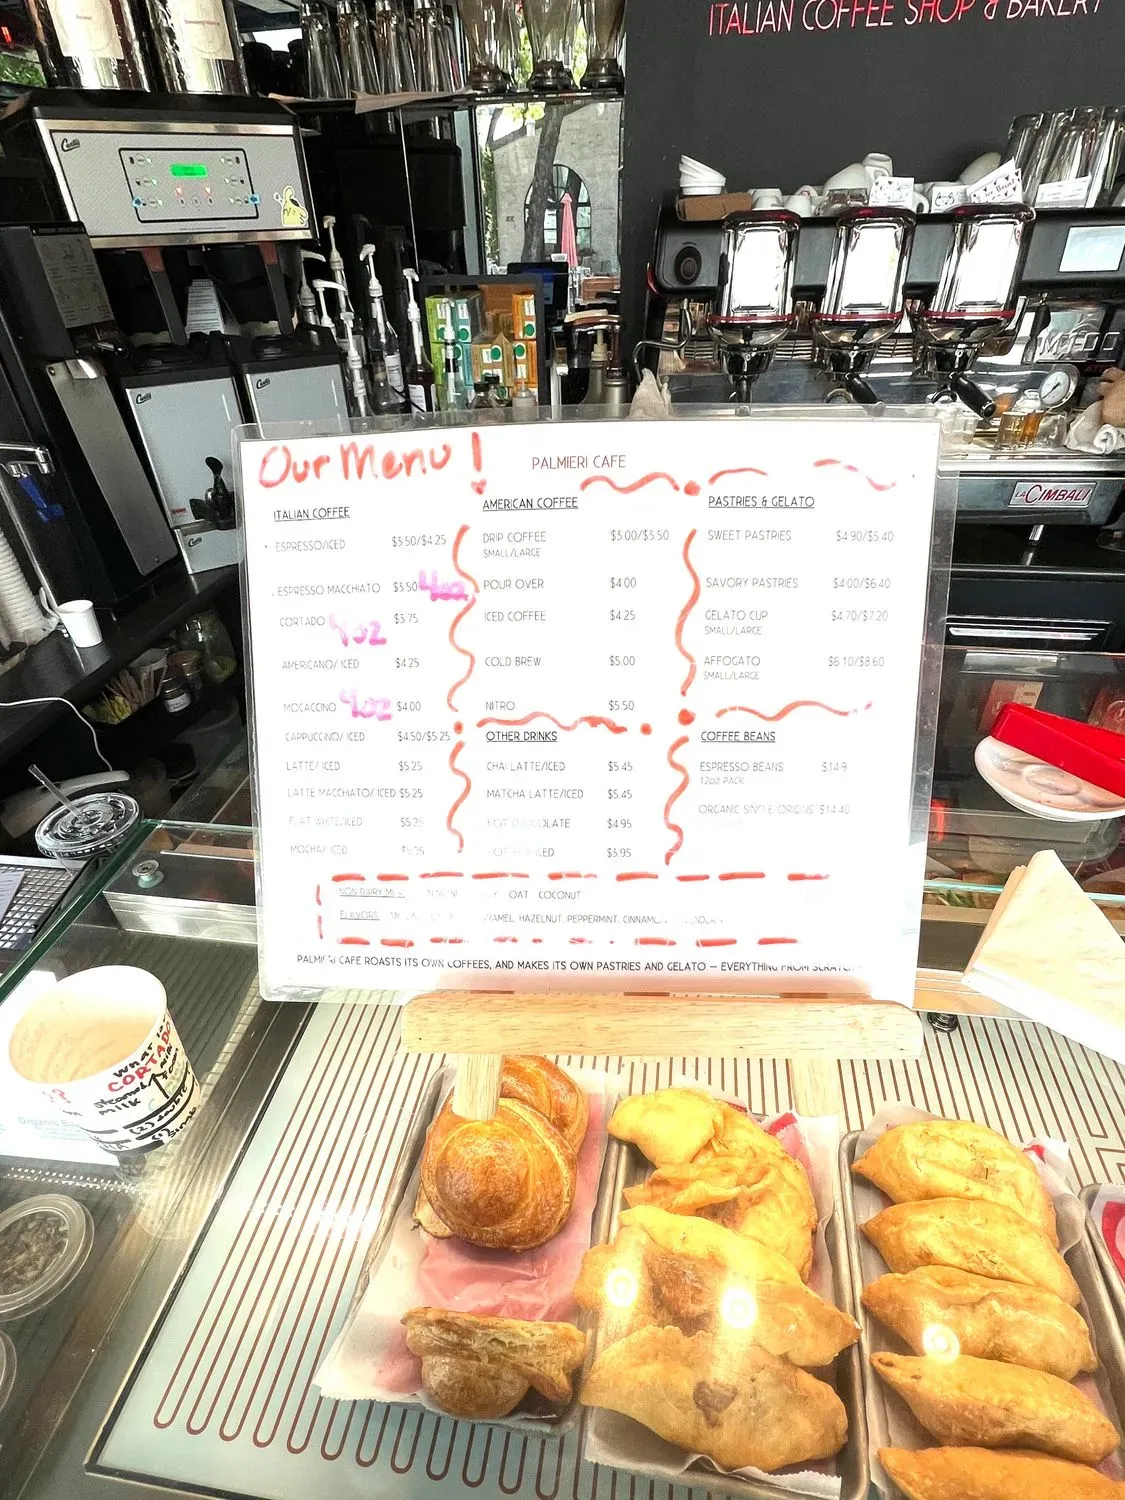 ITALIAN COFFEE SHOP & BAKERY
Curtis
Curtis
Curtis
LA CIMBALI
Our Menu!
PALMIERI CAFE
ITALIAN COFFEE
ESPRESSO/ICED $3.50/$4.25
ESPRESSO MACCHIATO $3.50 4oz
CORTADO 4oz $3.75
AMERICANO/ ICED $4.25
MOCACCINO 4oz $4.00
CAPPUCCINO/ ICED $4.50/$5.25
LATTE/ ICED $5.25
LATTE MACCHIATO/ ICED $5.25
FLAT WHITE/ICED $5.25
MOCHA/ ICED $5.25
AMERICAN COFFEE
DRIP COFFEE $3.00/$3.50
SMALL/LARGE
POUR OVER $4.00
ICED COFFEE $4.25
COLD BREW $5.00
NITRO $5.50
OTHER DRINKS
CHAI LATTE/ICED $5.45
MATCHA LATTE/ICED $5.45
HOT CHOCOLATE $4.95
HOT $3.95
PASTRIES & GELATO
SWEET PASTRIES $4.90/$5.40
SAVORY PASTRIES $4.00/$6.40
GELATO CUP $4.70/$7.20
SMALL/LARGE
AFFOGATO $6.10/$8.60
SMALL/LARGE
COFFEE BEANS
ESPRESSO BEANS
12OZ PACK
ORGANIC SINGLE ORIGINS $14.40
NON-DAIRY MILK OAT COCONUT
FLAVORS HAZELNUT, PEPPERMINT,
PALMIERI CAFE ROASTS ITS OWN COFFEES, AND MAKES ITS OWN PASTRIES AND GELATO – EVERYTHING FROM SCRATCH
what is
CORTADO
steamed
milk